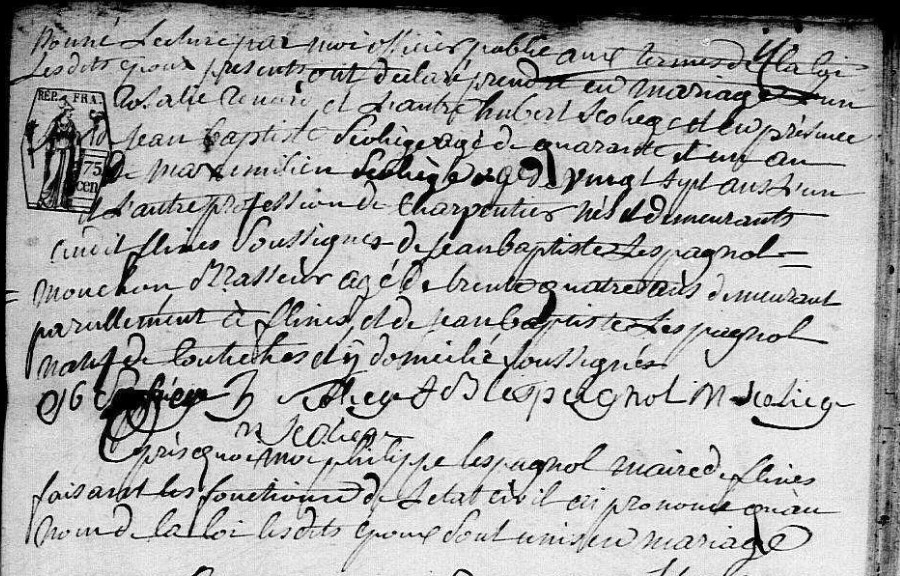 Donné Lecture par moi officier public aux termes de la loi
Lesdits epoux presents ont declaré prendre en mariage l'un
Rosalie Renard et L'autre hubert Scoliege et en présence
RÉP. FRA.
Jean baptiste Scoliege agé de quarante et un an
75 cen
de maximilien Scoliège agé de vingt sept ans L'un
et L'autre profession de Charpentier nés et demeurants
audit flines Soussignés de jean baptiste Lespagnol =
= Mouchon Brasseur agé de trente quatre ans demeurant
parullement à flines, et de jean baptiste Lespagnol
natif de et y domicilié Soussignés
J B lespagnol M Scolieg
n Scolieg
après quoi moi philippe lespagnol maire de flines
faisant les fonctions de L'etat civil ai prononcé qu'au
Nom de la loi lesdits epoux Sont unis en mariage